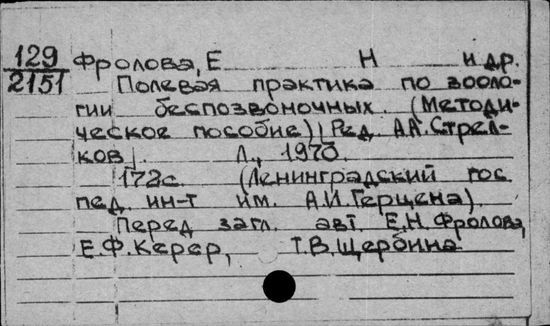 129 Фролова, Е Н и др.
2151 Полевая практика по зооло-
гии беспозвоночных. (Методи-
ческое пособие) | Ред. А.А. Стрел-
ков |. Л., 1970.
172с. (Ленинградский гос
пед. ин-т им. А.И. Герцена).
Перед загл. авт. Е.Н. Фролова,
Е.Ф. Керер, Т.В. Щербина